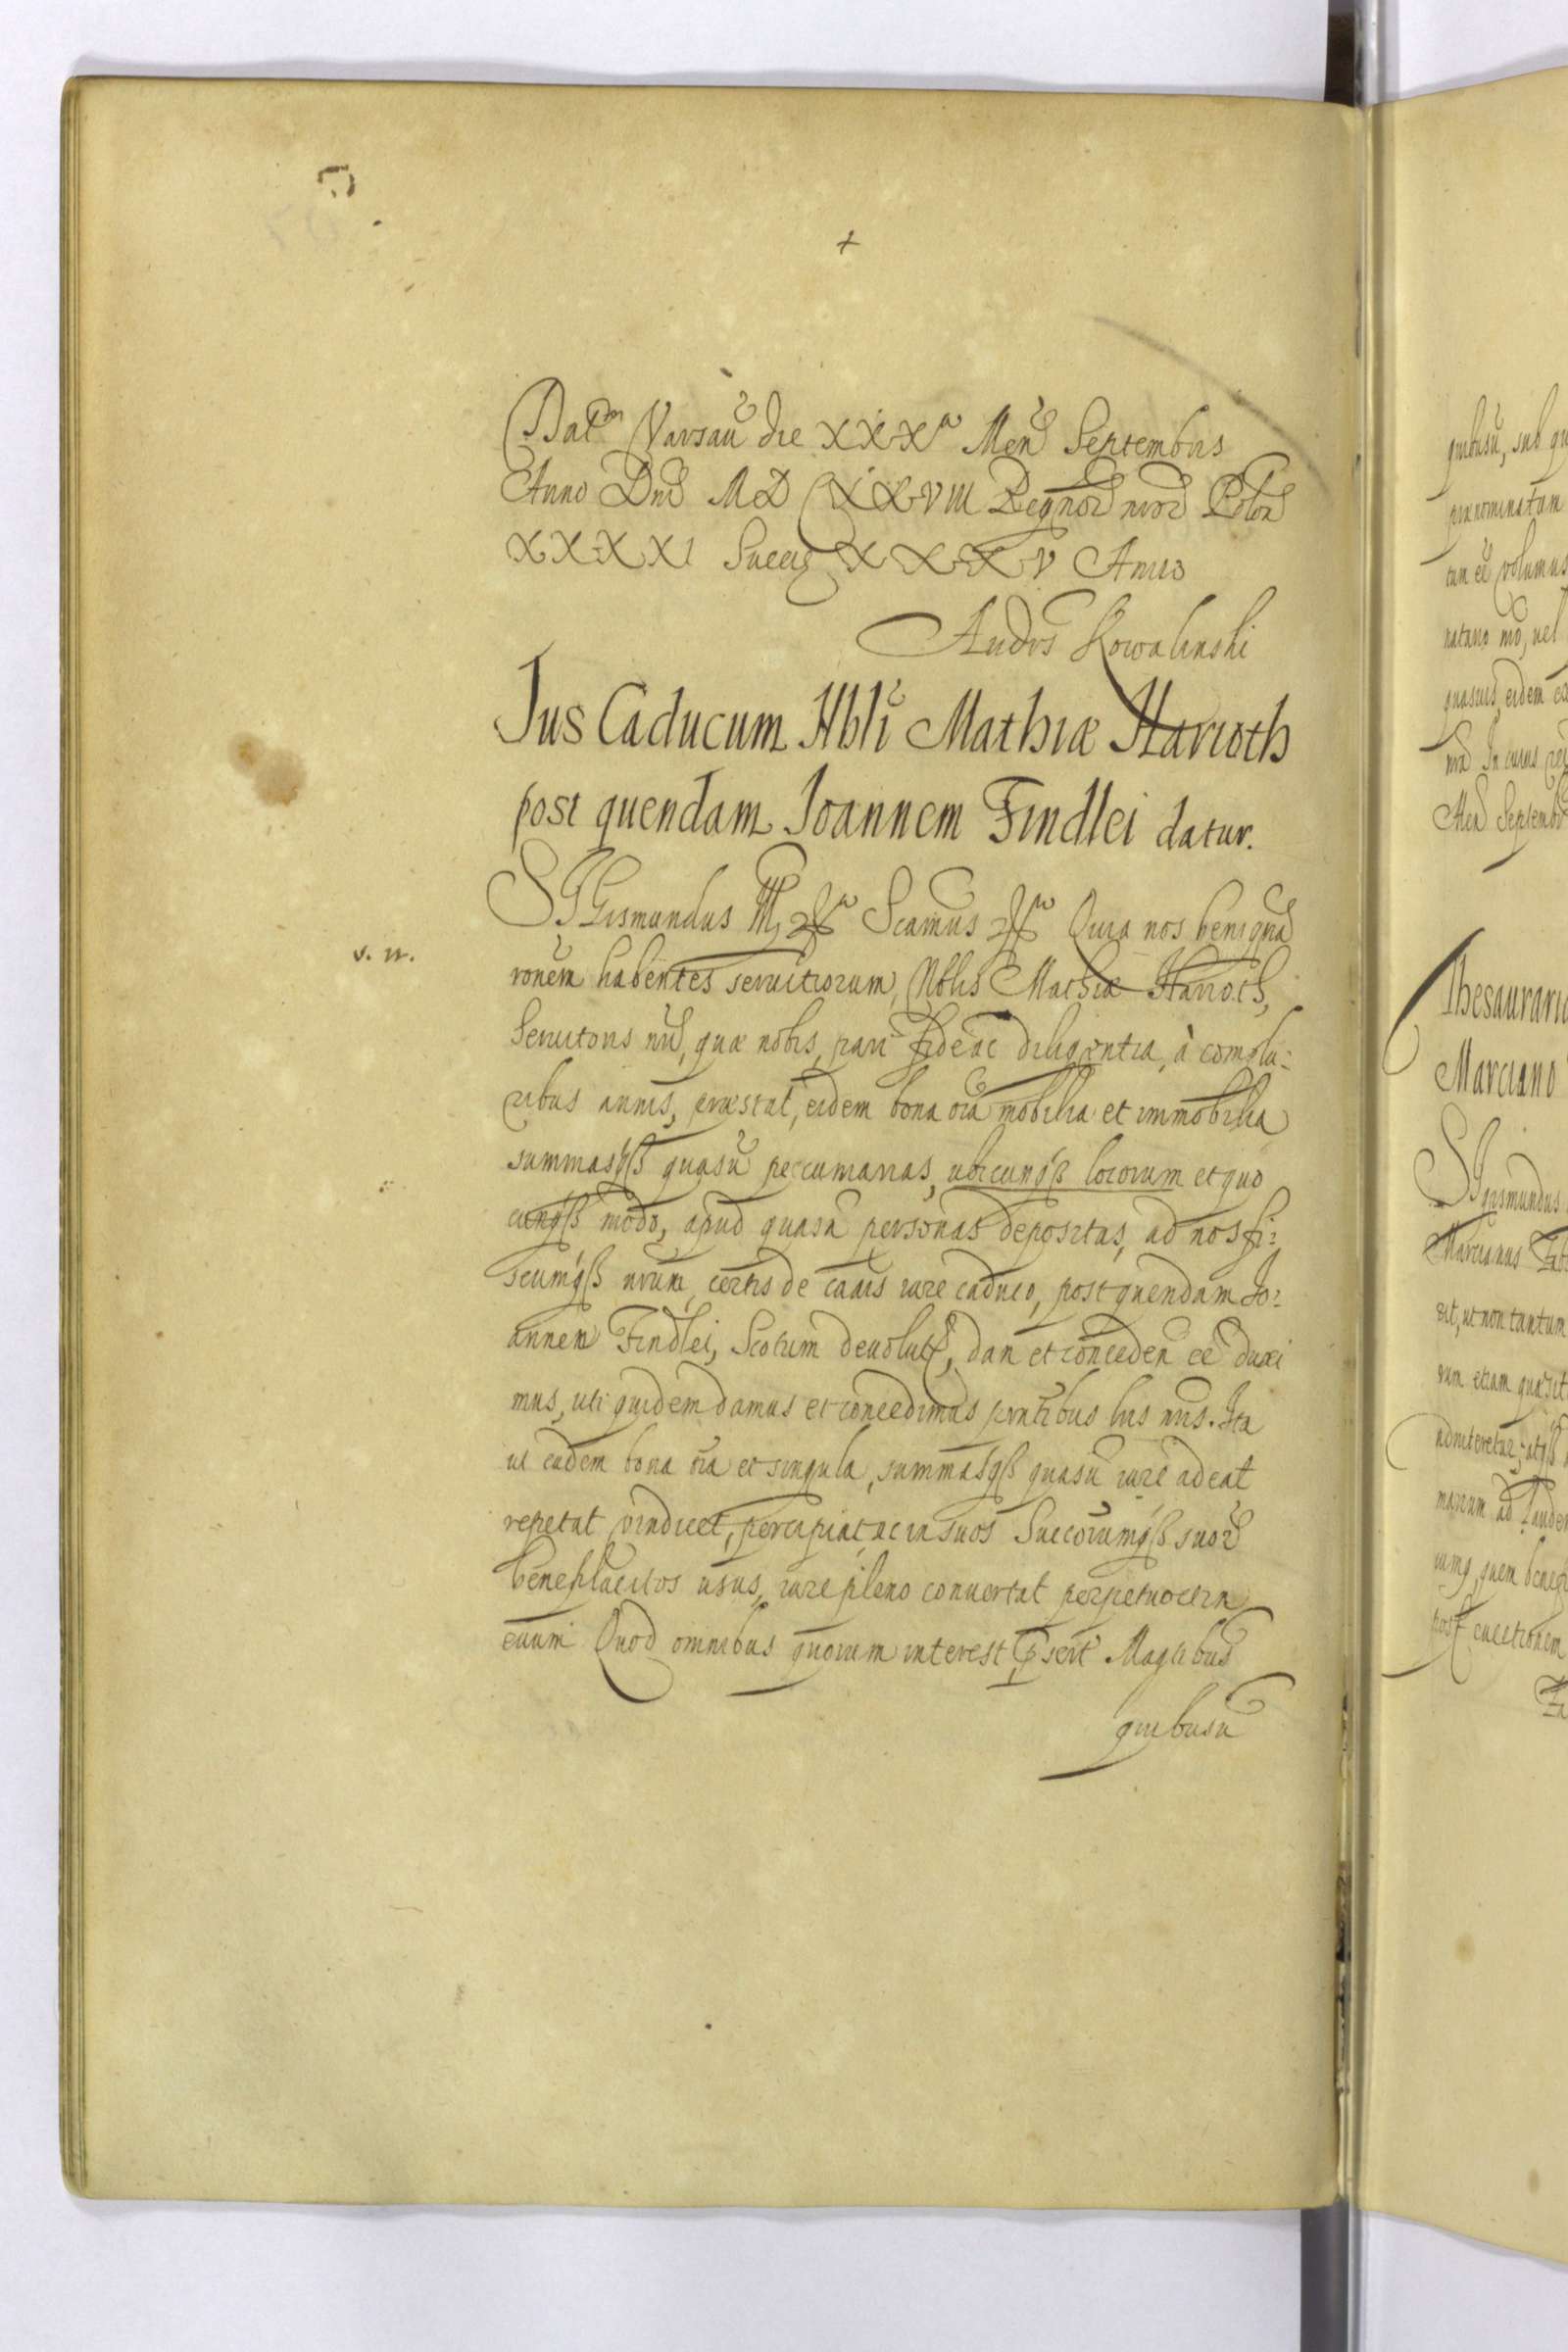 +
Datm Varsaũ die XXXa Men Septembris
Anno Dni MDCXXVIII Regnor nror Polon
XXXXI Suecie XXXV Anno
Andrs Kowalinski
Jus Caducum Nbli Mathiæ Harioth
post quendam Joannem Findlei datur.
SIGismundus III, &a Scamus &a Quia nos benignã
v. n.
ronem habentes servitiorum, Nblis Mathiæ Harioth,
Servitoris nri, quæ nobis, pari fide ac diligentia, à complu:
ribus annis, præstat, eidem bona oia mobilia et immobilia
summasqß quasũ peccuniarias, ubicunqß locorum et quo
cunqß modo, apud quasũ personas depositas, ad nos fi:
scumqß nrum, certis de cãuis iure caduco, post quendam Jo:
annem Findlei, Scotum devolut, dan et conceden eẽ duxi
mus, uti quidem damus et concedimus pñtibus lris nris. Ita
ut eadem bona oia et singula, summasqß quasũ iure adeat
repetat vindicet, percipiat, ac in suos Succorumqß suor
beneplacitos usus, iure pleno convertat perpetuo et in
ævum Quod omnibus quorum interest pserť Magribus
quibusũ
quibusũ, sub qu
prænominatum
tum eẽ volumus
natario mõ, vel
quasuis, eidem
nra In cuius rei
Men Septemb
Thesaurari
Marciano
SIgismundus
Marcianus
sit, ut non tantum
rum etiam quæ sit
adniteretur, atqß
manum ad
quem
post evectionem